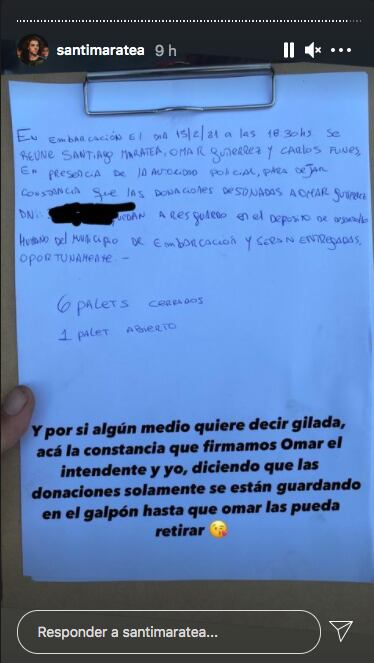 santimaratea 9 h
En Embarcación el dia 15/2/21 a las 18:30hs se
reune Santiago Maratea, Omar Gutierrez y Carlos Funes,
en presencia de la autoridad policial, para dejar
constancia que las donaciones desonadas a Omar Gutierrez
DNI: quedan a resguardo en el deposito de desarrollo
humano del municipio de Embarcación y seran entregadas,
oportunamente. -
6 palets cerrados
1 palet abierto
Y por si algún medio quiere decir gilada,
acá la constancia que firmamos Omar el
intendente y yo, diciendo que las
donaciones solamente se están guardando
en el galpón hasta que omar las pueda
retirar 😘
Responder a santimaratea...